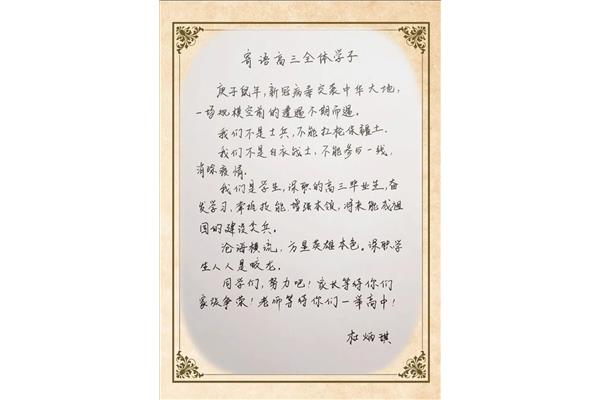 寄语高三全体学子
庚子鼠年,新冠病毒突袭中华大地,
一场规模空前的遭遇不期而遇。
我们不是士兵,不能扛枪保疆土。
我们不是白衣战士,不能参与一线,
消除疫情。
我们是学生,深职的高三毕业生,奋
发学习,掌握技能,增强本领,将来能成祖
国的建设尖兵。
沧海横流,方显英雄本色。深职学
生人人是蛟龙。
同学们,努力吧!家长等待你们
家族争荣!老师等待你们一举高中!
炳琪